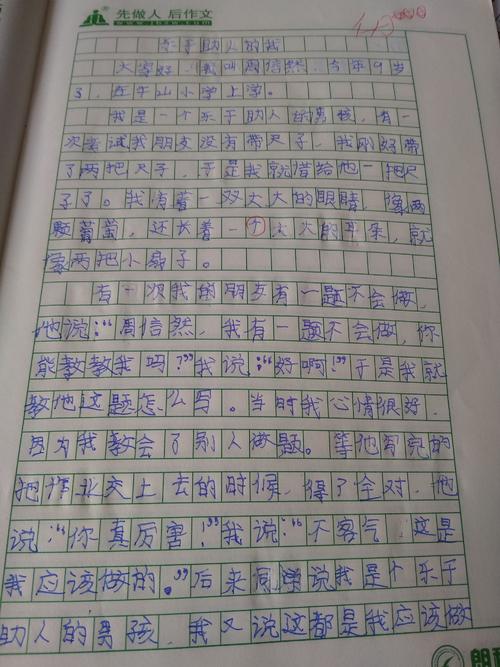 先做人 后作文
乐于助人的我
大家好,我叫周信然,今年9岁
了,在牛山小学上学。
我是一个乐于助人的男孩,有一
次考试我朋友没有带尺子,我刚好带
了两把尺子,于是我就借给他一把尺
子了。我有着一双大大的眼睛,像两
颗葡萄,还长着一个大大的耳朵,就
像两把小扇子。
有一次我的朋友有一题不会做,
他说:“周信然,我有一题不会做,你
能教教我吗?”我说:“好啊!”于是我就
教他这题怎么写。当时我心情很好,
因为我教会了别人做题。等他写完的
把作业交上去的时候,得了全对,他
说:“你真厉害!”我说:“不客气,这是
我应该做的。”后来同学说我是个乐于
助人的男孩,我又说这都是我应该做